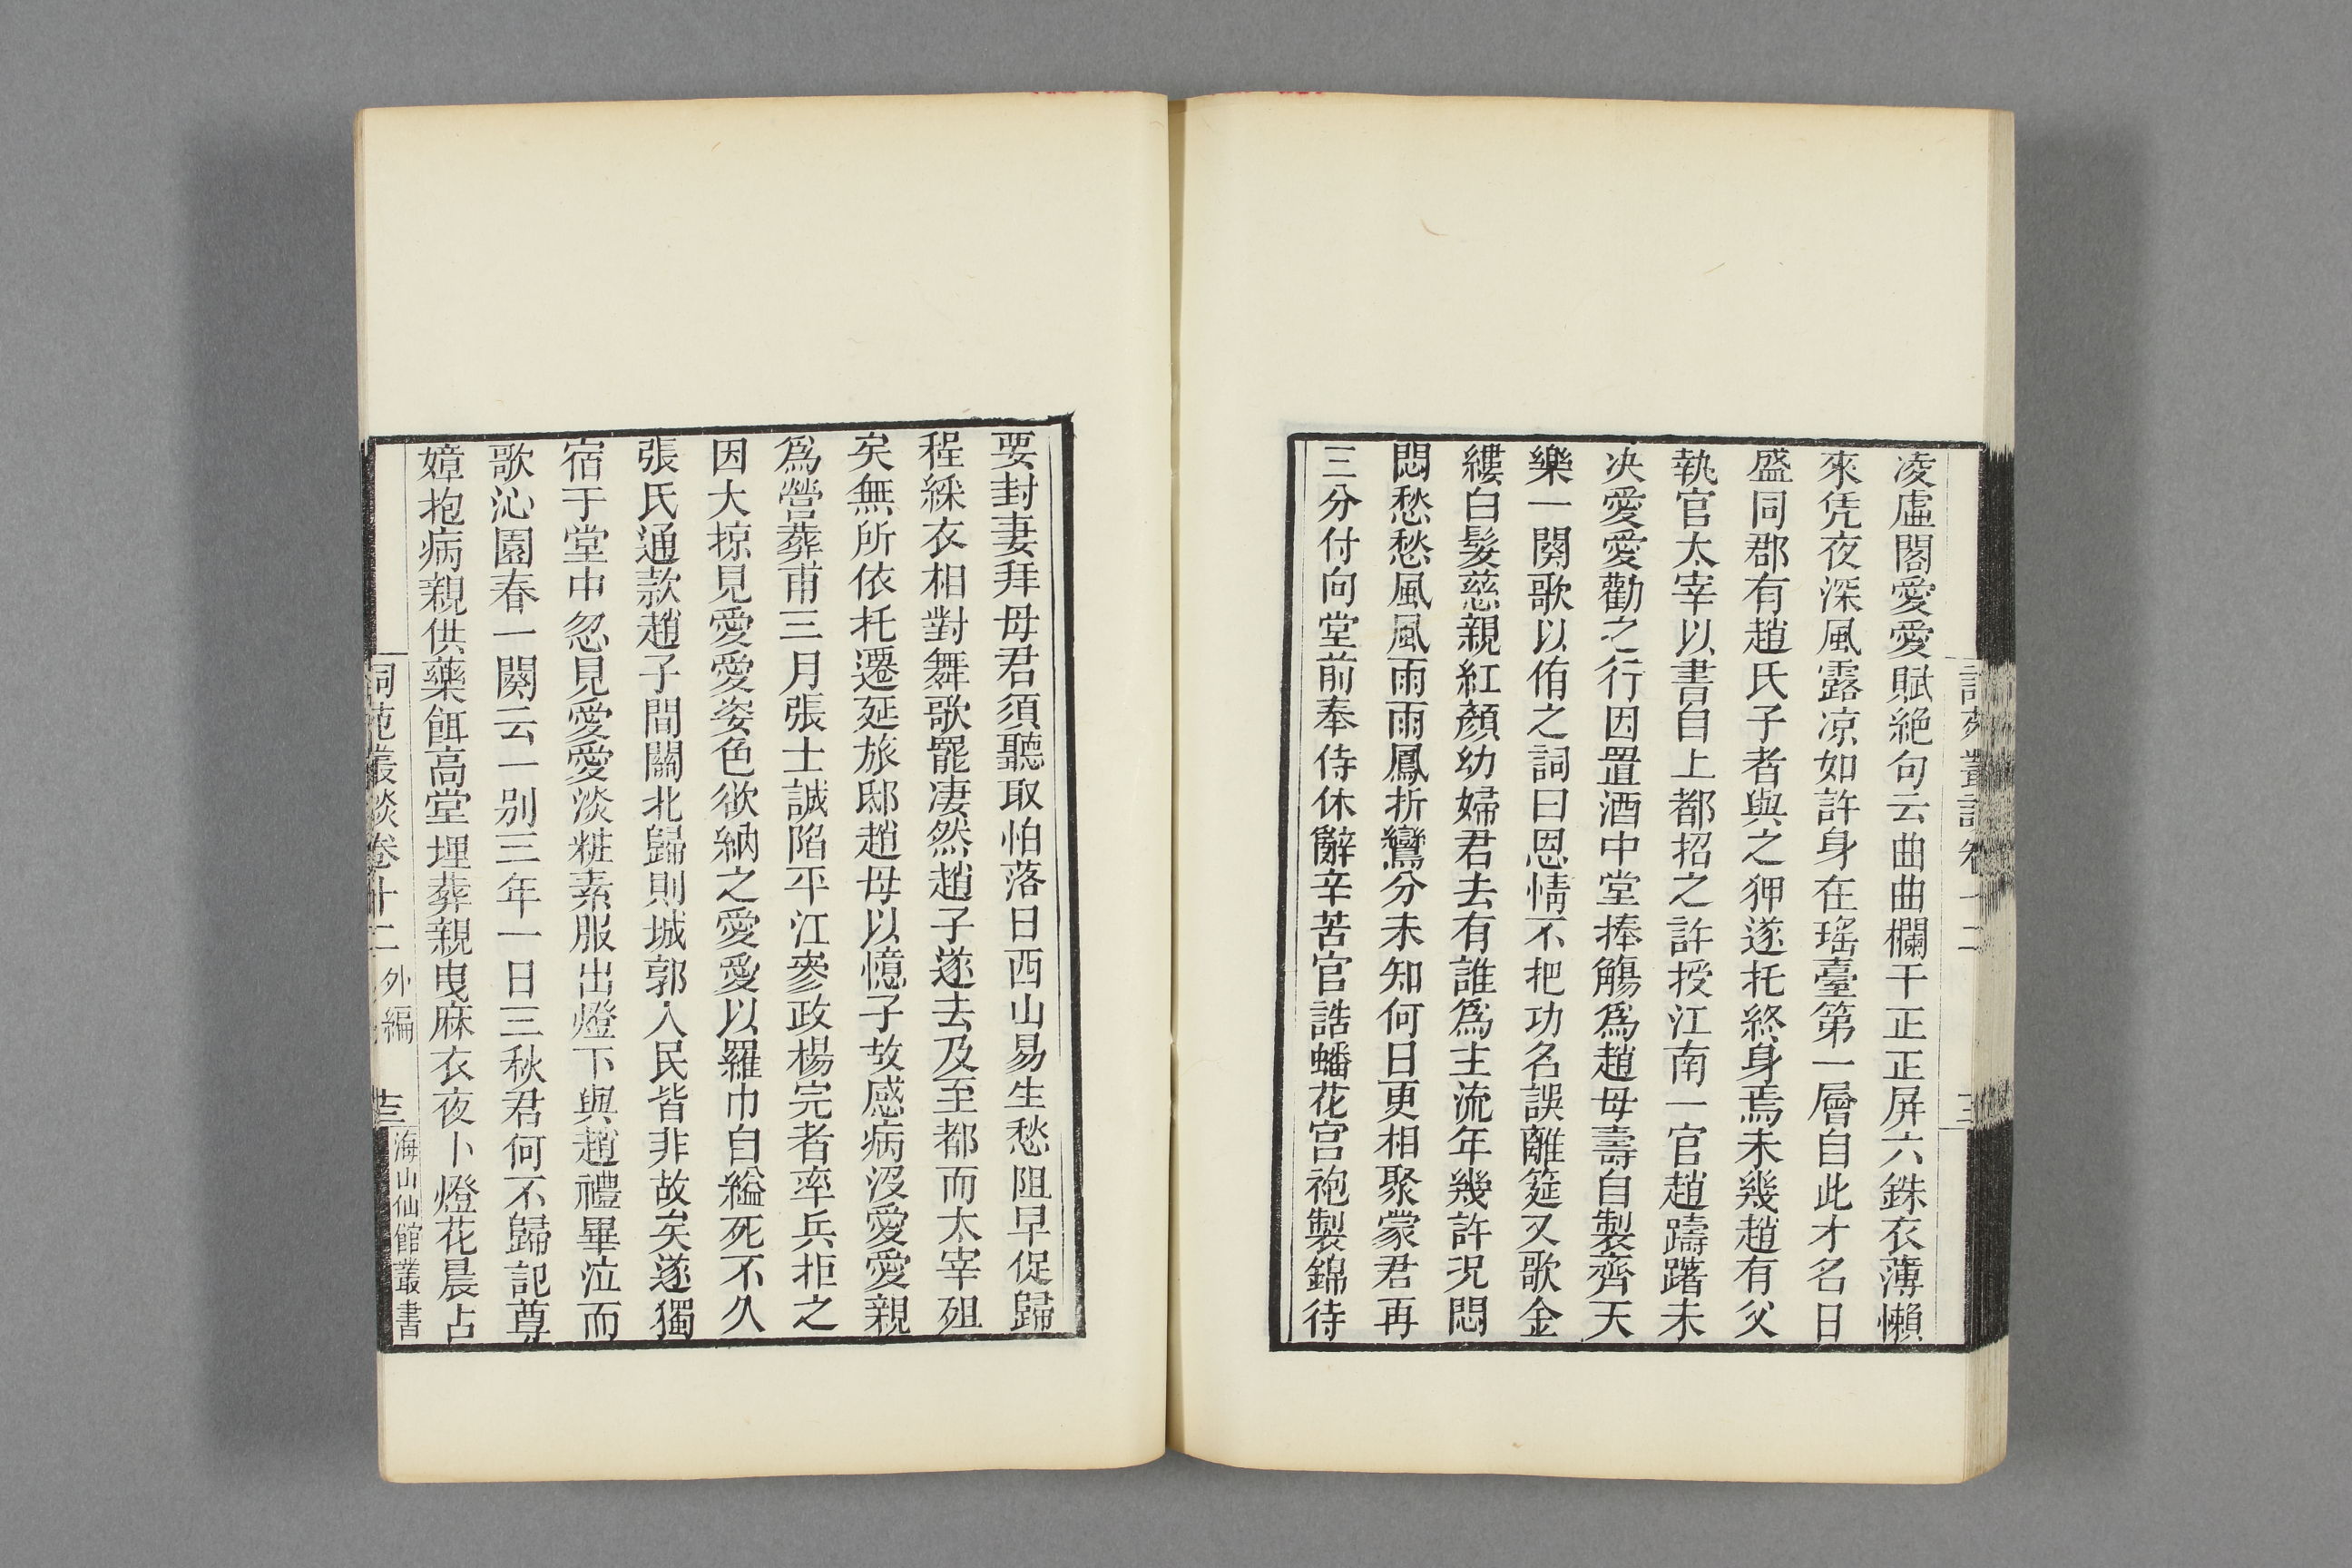 凌虛閣愛愛賦絶句云曲曲欄干正正屏六銖衣薄懶
來凭夜深風露凉如許身在瑤臺第一層自此才名日
盛同郡有趙氏子者與之狎遂托終身焉未幾趙有父
執官太宰以書自上都招之許授江南一官趙躊躇未
决愛愛勸之行因置酒中堂捧觴爲趙母壽自製齊天
樂一闋歌以侑之詞曰恩情不把功名誤離筵又歌金
縷白髮慈親紅顏幼婦君去有誰爲主流年幾許况悶
悶愁愁風風雨雨鳳折鸞分未知何日更相聚蒙君再
三分付向堂前奉侍休辭辛苦官誥蟠花宫袍製錦待
要封妻拜母君須聽取怕落日西山易生愁阻早促歸
程綵衣相對舞歌罷凄然趙子遂去及至都而太宰殂
矣無所依托遷延旅邸趙母以憶子故感病沒愛愛親
爲營葬甫三月張士誠陷平江參政楊完者率兵拒之
因大掠見愛愛姿色欲納之愛愛以羅巾自縊死不久
張氏通款趙子間關北歸則城郭人民皆非故矣遂獨
宿于堂中忽見愛愛淡粧素服出燈下與趙禮畢泣而
歌沁園春一闋云一別三年一日三秋君何不歸記尊
嫜抱病親供藥餌高堂埋葬親曳麻衣夜卜燈花晨占
詞苑叢談卷十二 外編 海山仙館叢書